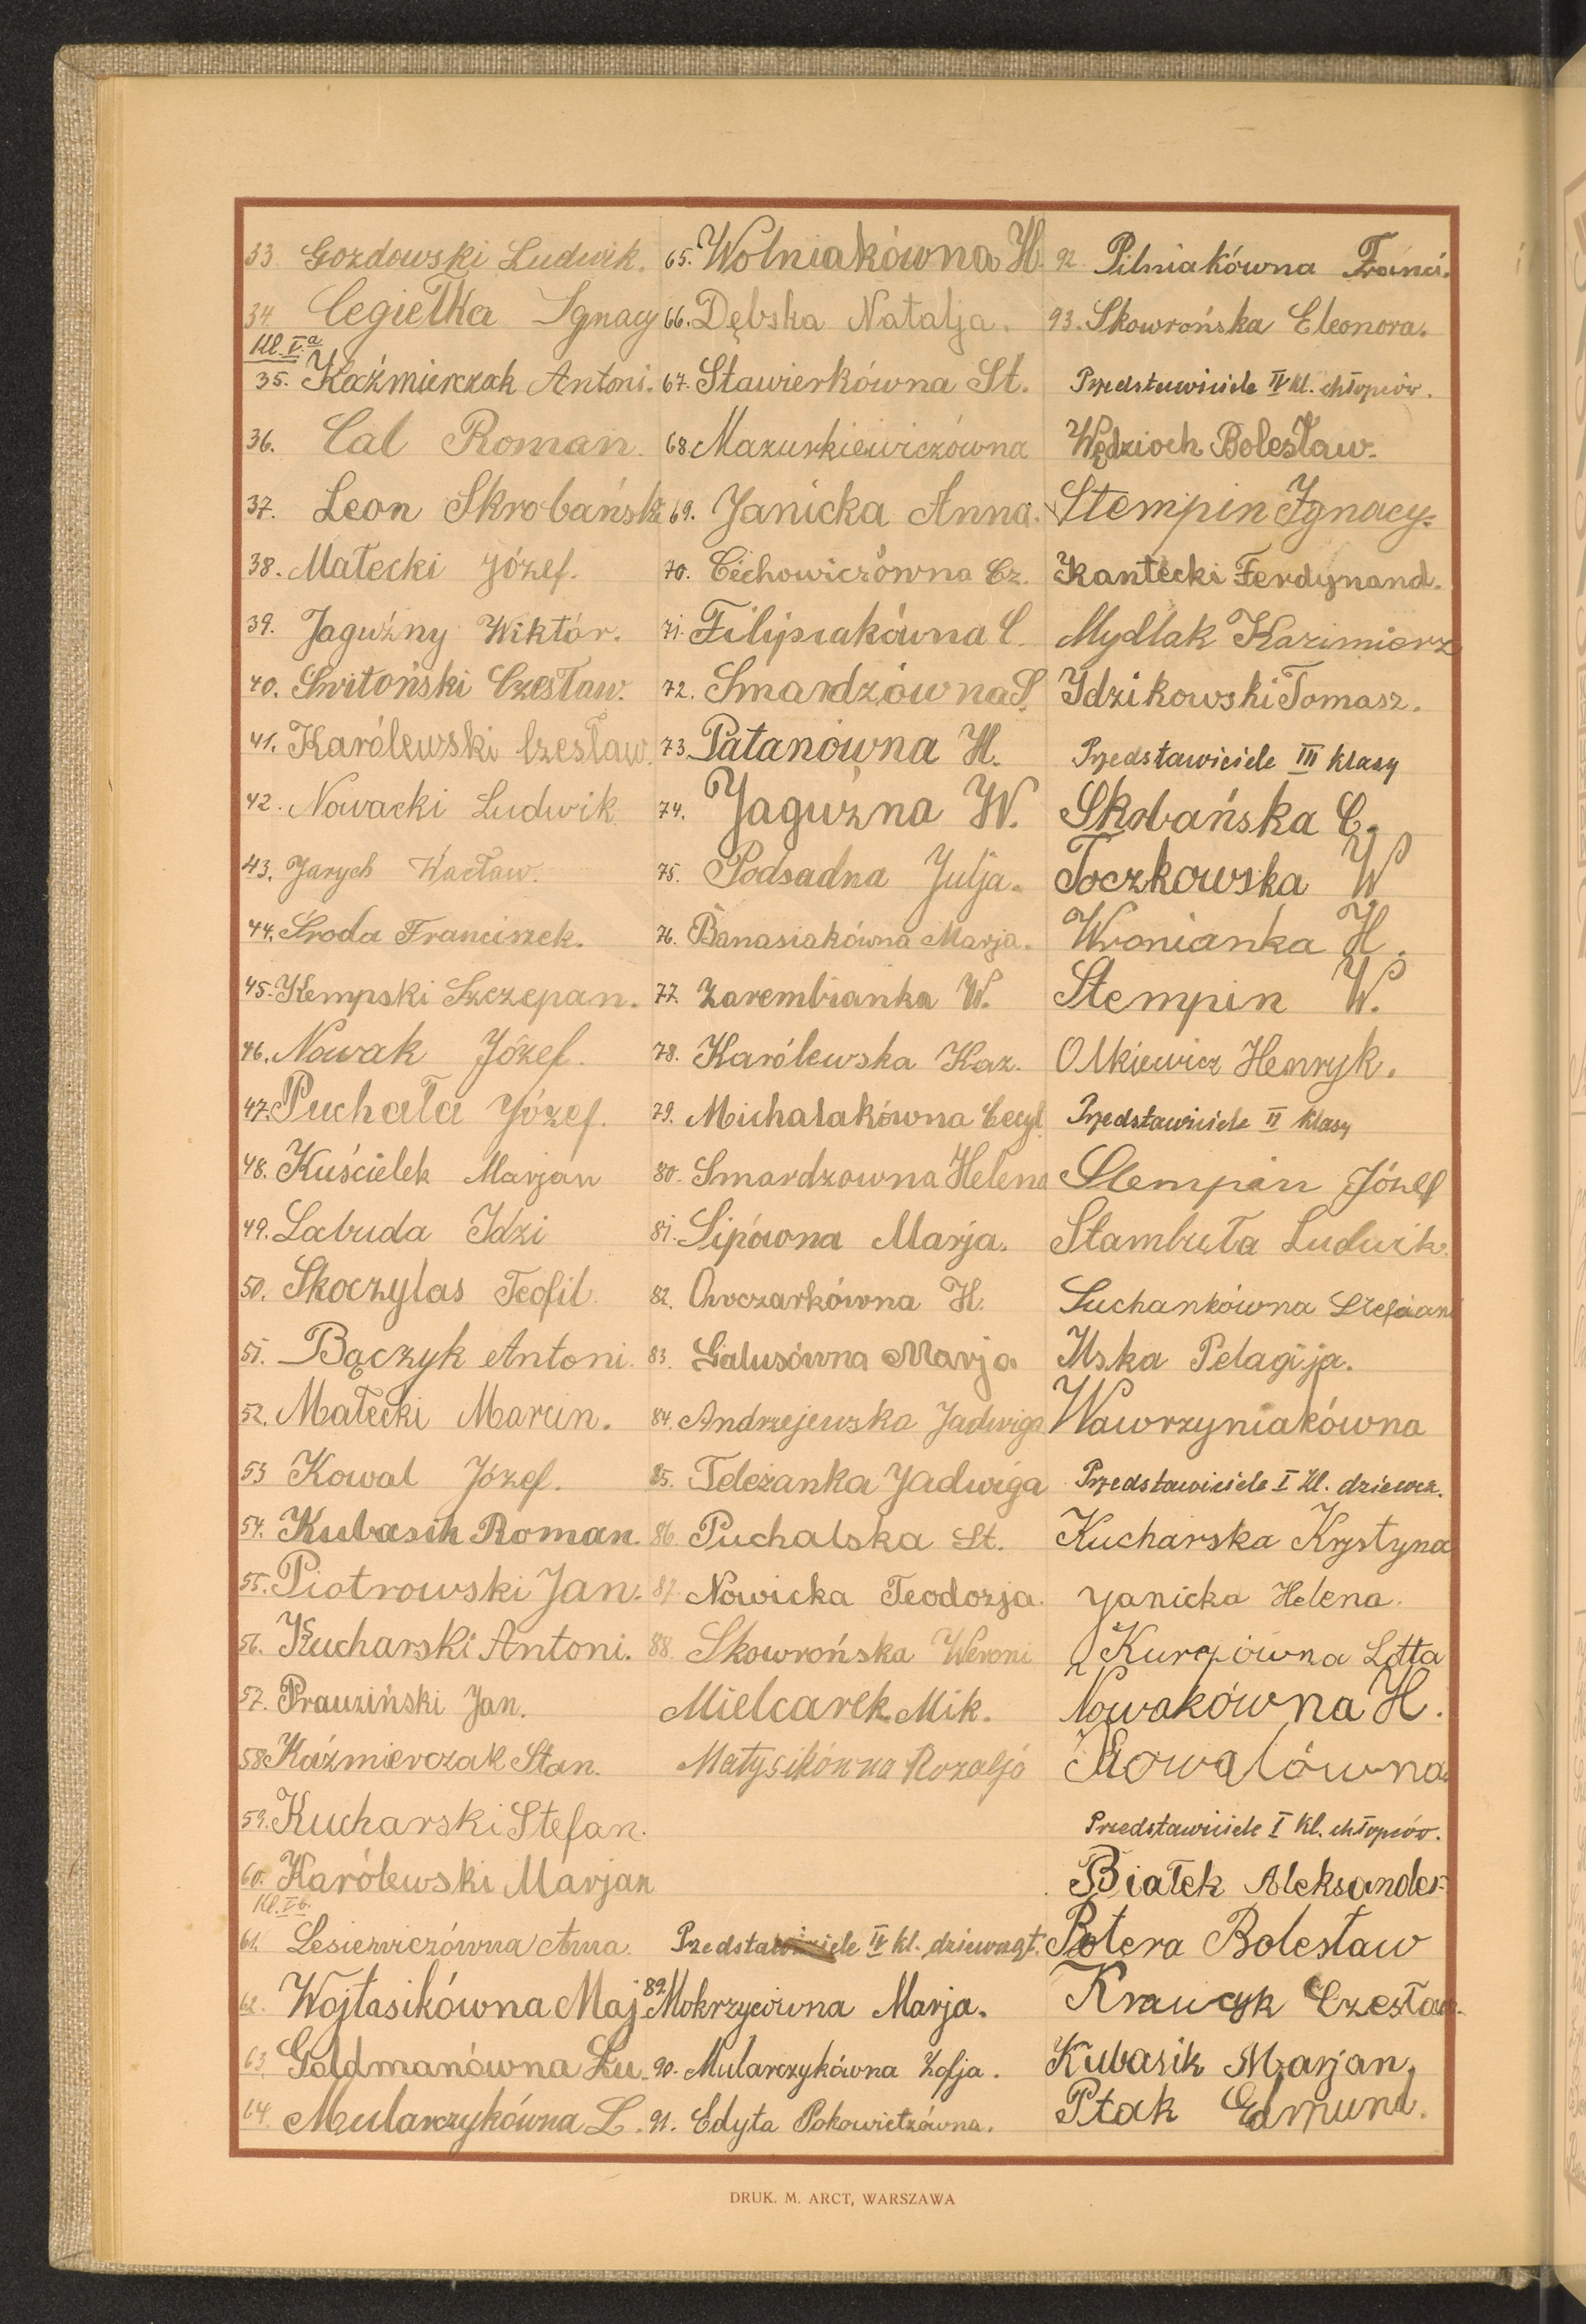 33 Gozdowski Ludwik.
34. Cegiełka Ignacy
Kl. V.a
35. Kaźmierczak Antoni.
36. Cal Roman.
37. Leon Skrobański
38. Małecki Józef.
39. Jaguźny Wiktór.
40. Switoński Czesław.
41. Karólewski Czesław.
42. Nowacki Ludwik
43. Jarych Wacław.
44. Sroda Franciszek.
45. Kempski Szczepan.
46. Nowak Józef.
47. Puchała Józef.
48. Kuścielek Marjan
49. Labuda Idzi
50. Skoczylas Teofil.
51. Bączyk Antoni.
52. Małecki Marcin.
53 Kowal Józef.
54. Kubasik Roman.
55. Piotrowski Jan.
56. Kucharski Antoni.
57. Prauziński Jan.
58 Kaźmierczak Stan.
59. Kucharski Stefan.
60. Karólewski Marjan
Kl. Vb.
61. Lesiewiczówna Anna.
62. Wojtasikówna Maj
63. Goldmanówna Lu.
64. Mularczykówna L.
65. Wolniakówna H.
66. Dębska Natalja.
67. Stawierkówna St.
68. Mazurkiewiczówna
69. Janicka Anna.
70. Cichowiczówna Cz.
71. Filipiakówna C.
72. Smardzówna S.
73. Patanówna H.
74. Jaguźna W.
75. Podsadna Julja.
76. Banasiakówna Marja.
77. Zarembianka W.
78. Karólewska Kaz.
79. Michalakówna Cecyl.
80. Smardzowna Helena
81. Sipówna Marja.
82. Owczarkówna H.
83. Galusówna Marja
84. Andrzejewska Jadwiga
85. Teleżanka Jadwiga
86. Puchalska St.
87. Nowicka Teodozja.
88. Skowrońska Weroni
Mielcarek Mik.
Matysikówna Rozalja
Przedstawiciele IV kl. dziewcząt.
89. Mokrzycówna Marja.
90. Mularczykówna Zofja.
91. Edyta Pokowietzówna.
92. Pilniakówna Franci.
93. Skowrońska Eleonora.
Przedstawiciele IV kl. chłopców.
Wędzioch Bolesław.
Stempin Ignacy.
Kantecki Ferdynand.
Mydlak Kazimierz
Idzikowski Tomasz.
Przedstawiciele III klasy
Skobańska C.
Toczkowska W
Wronianka H.
Stempin W.
Olkiewicz Henryk.
Przedstawiciele II klasy
Stempin Józef
Stambuła Ludwik.
Suchankówna
Ilska Pelagija.
Wawrzyniakówna
Przedstawiciele I kl. dziewcz.
Kucharska Krystyna
Janicka Helena.
Kurpiówna Lotta
Nowakówna H.
Kowalówna
Przedstawiciele I kl. chłopców.
Białek Aleksander
Potera Bolesław
Krawczyk Czesław.
Kubasik Marjan,
Ptak Edmund.
DRUK. M. ARCT, WARSZAWA